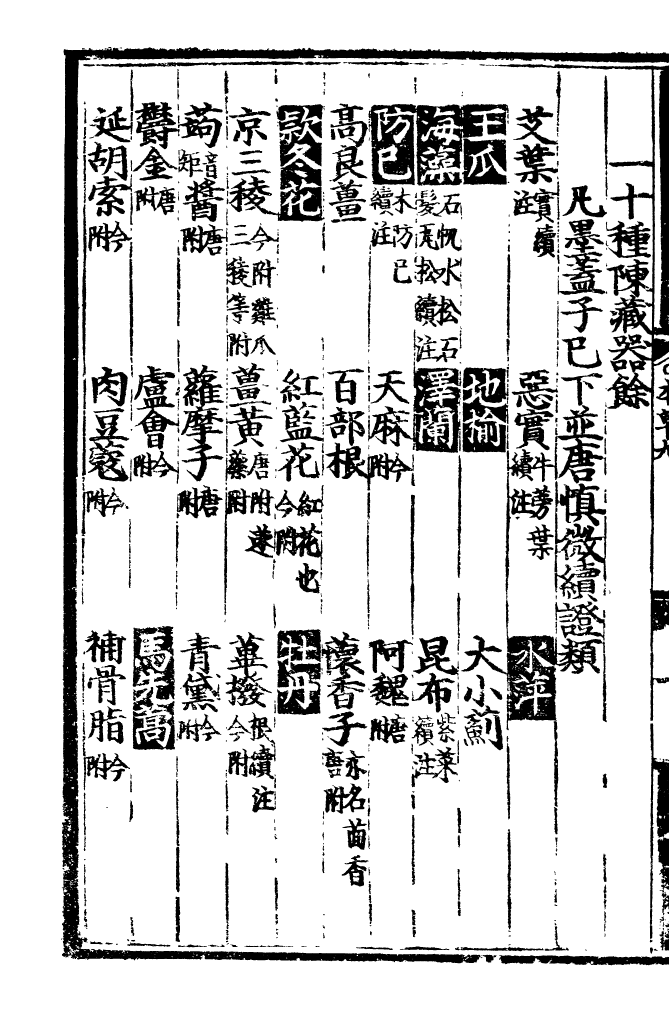 一十種陳藏器餘
凡墨蓋子巳下並唐慎微續證類
艾葉 實續注 惡實 牛蒡葉續注 水萍
王瓜 地榆 大小薊
海藻 石帆水松石髮瓦松續注 澤蘭 昆布 紫菜續注
防巳 木防已續注 天麻 今附 阿魏 唐附
高良薑 百部根 蘹香子 亦名茴香唐附
款冬花 紅藍花 紅花也今附 牡丹
京三稜 今附雞爪三稜等附 薑黃 唐附蒁藥附 蓽撥 根續注今附
蒟 音矩 醬 唐附 蘿摩子 唐附 青黛 今附
鬱金 唐附 盧會 今附 馬先蒿
延胡索 今附 肉豆蔻 今附 補骨脂 今附